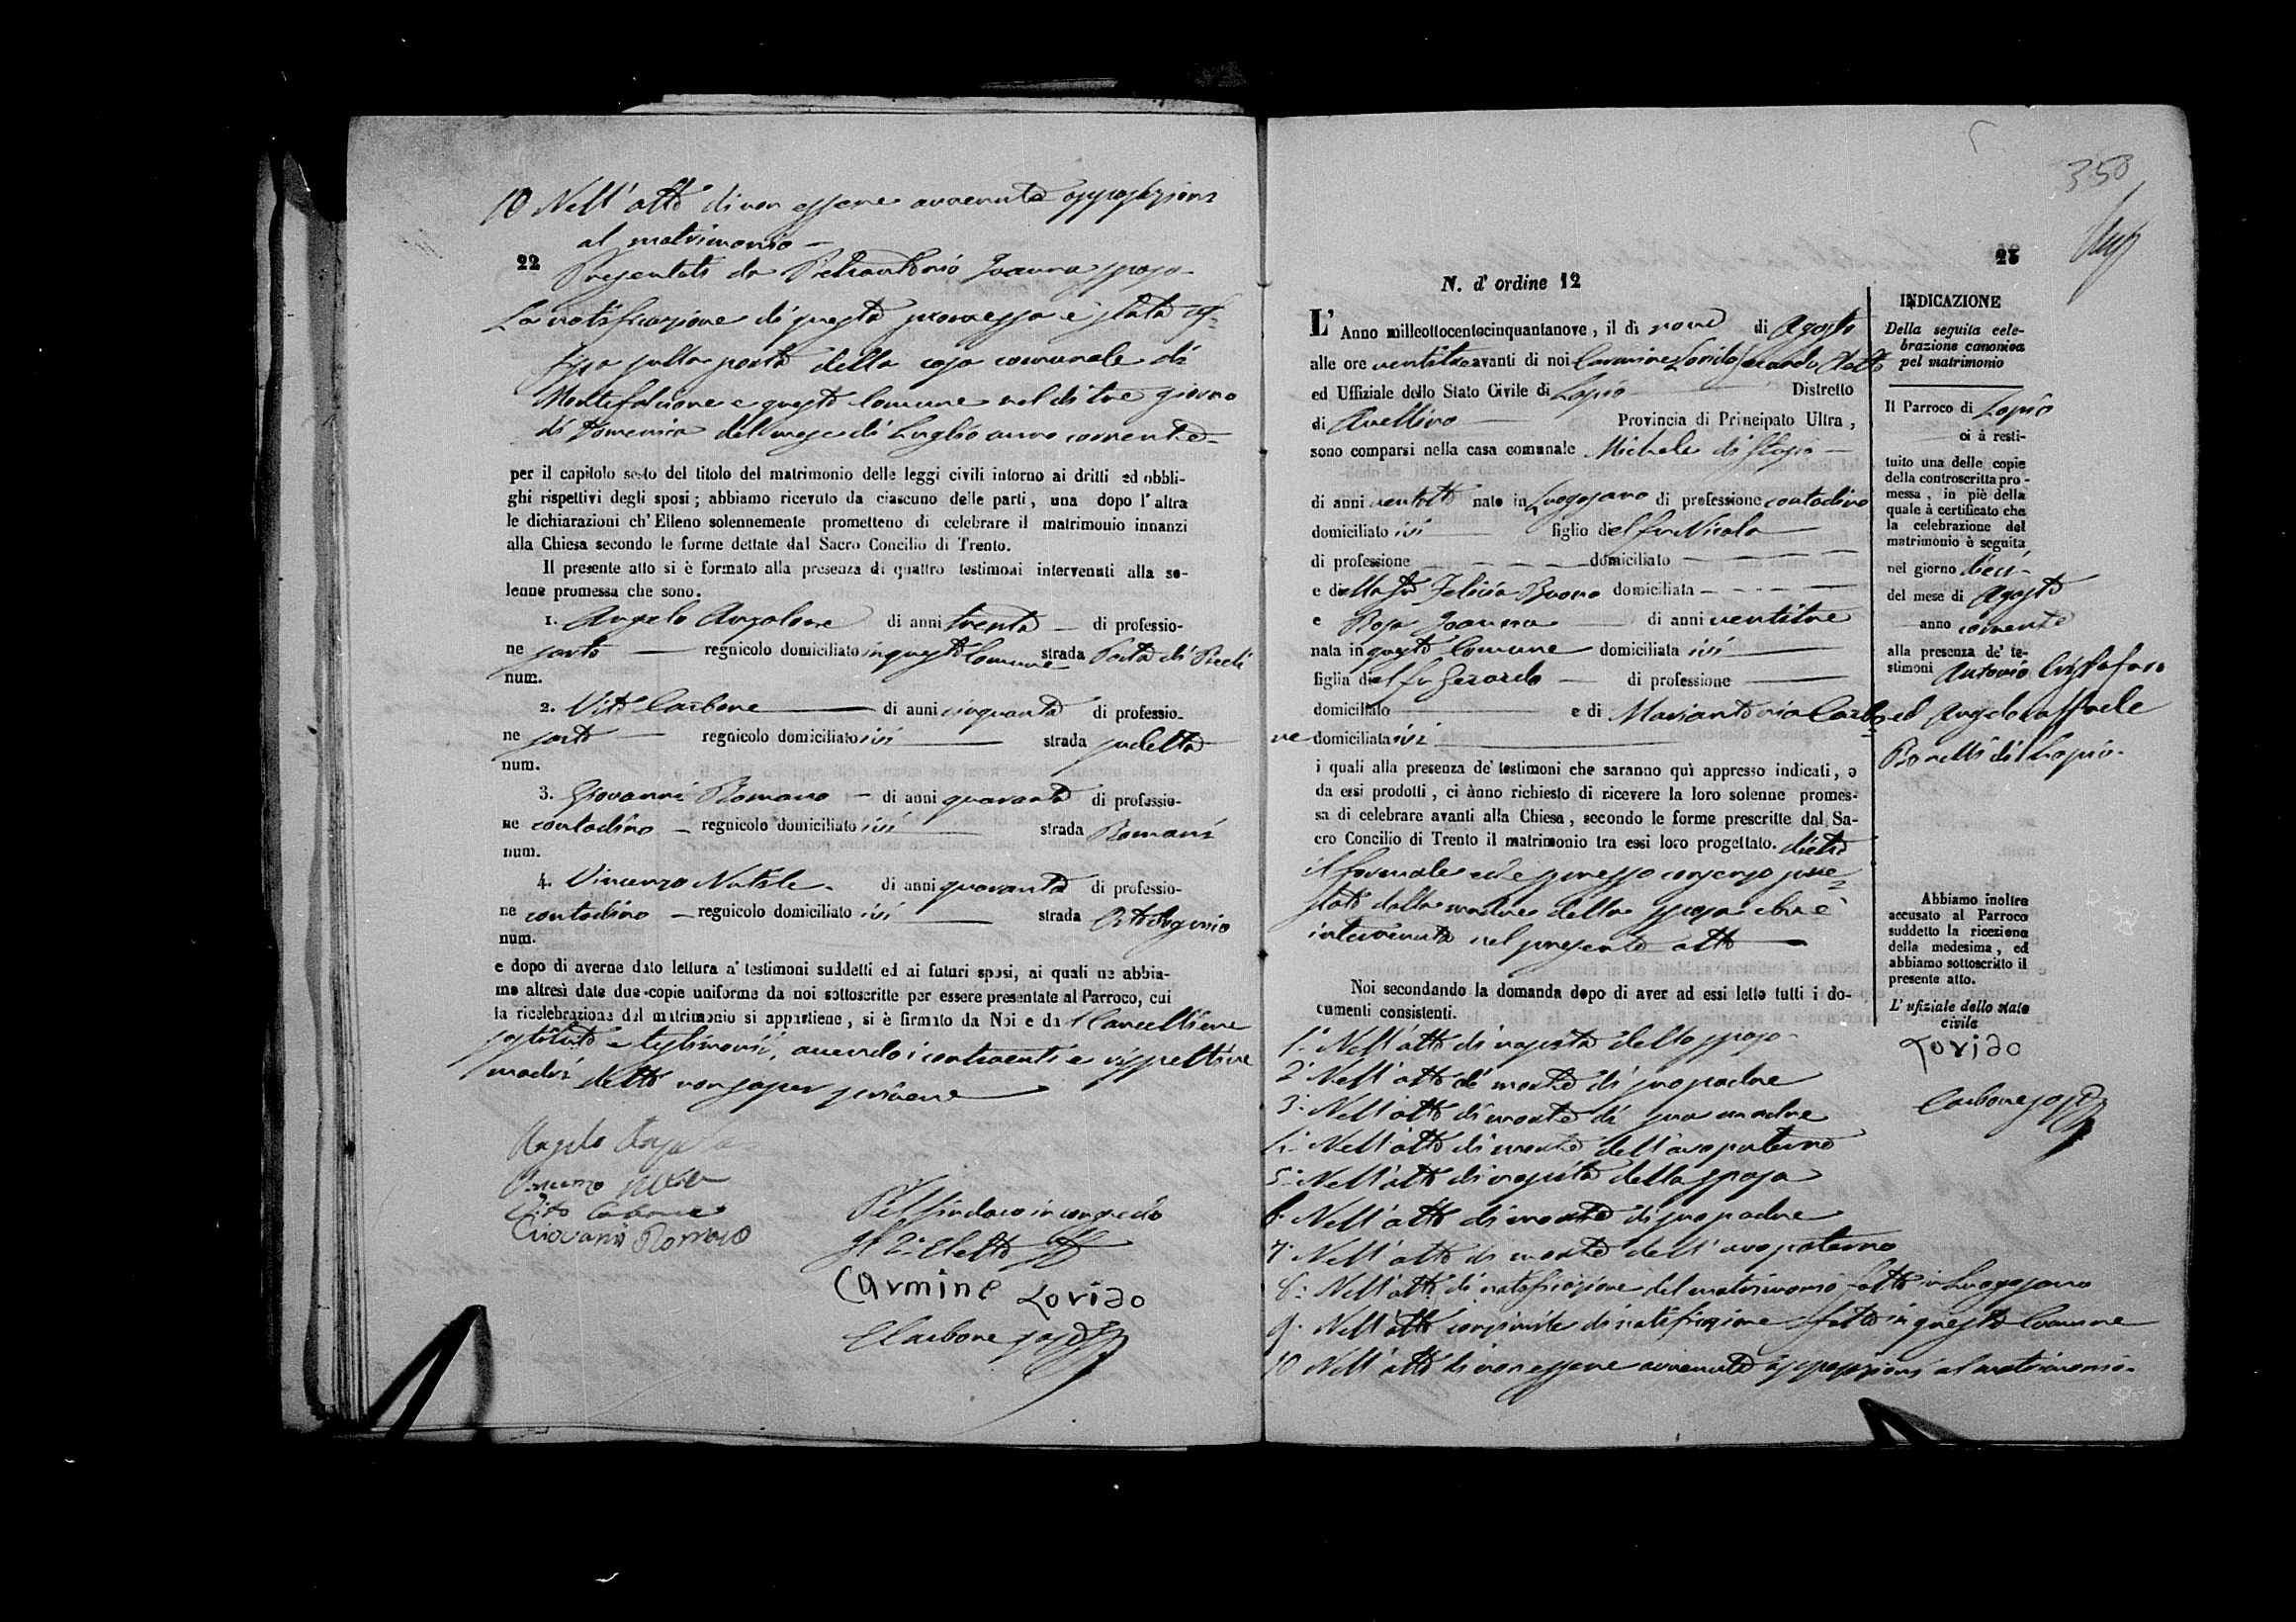 10 Nell'atto di non essere avvenuta opposizione
al matrimonio —
22
Presentati da Pietrantonio Joanna sposo
La notificazione di questa promessa è stata af-
fissa sulla porta della casa comunale di
Montefalcione e questo Comune nel dì tre giorno
di Domenica del mese di Luglio anno corrente
per il capitolo sesto del titolo del matrimonio delle leggi civili intorno ai dritti ed obbli-
ghi rispettivi degli sposi; abbiamo ricevuto da ciascuno delle parti, una dopo l'altra
le dichiarazioni ch'Elleno solennemente prometteno di celebrare il matrimonio innanzi
alla Chiesa secondo le forme dettate dal Sacro Concilio di Trento.
Il presente atto si è formato alla presenza di quattro testimoni intervenuti alla so-
lenne promessa che sono.
1. Angelo Anzalone di anni trenta di professio-
ne sarto regnicolo domiciliato in questo Comune strada Porta di
num.
2. Vito Carbone di anni cinquanta di professio-
ne sarto regnicolo domiciliato ivi strada
num.
3. Giovanni Romano di anni quaranta di professio-
ne contadino regnicolo domiciliato ivi strada Romani
num.
4. Vincenzo Natale di anni quaranta di professio-
ne contadino regnicolo domiciliato ivi strada
num.
e dopo di averne dato lettura a' testimoni suddetti ed ai futuri sposi, ai quali ne abbia-
mo altresì date due copie uniforme da noi sottoscritte per essere presentate al Parroco, cui
la ricelebrazione del matrimonio si appartiene, si è firmato da Noi e da Cancelliere
sostituto e testimonii, avendo i contraenti e rispettive
madri detto non saper scrivere
Angelo
Vincenzo
Vito Carbone
Giovanni Romano
Pel Sindaco in congedo
Il 2° Eletto
Carmine Lorido
Carbone sost°
350
23
N. d'ordine 12
L'Anno millottocentocinquantanove, il dì nove di Agosto
alle ore ventitre avanti di noi Carmine Lorido secondo Eletto
ed Uffiziale dello Stato Civile di Lapio Distretto
di Avellino Provincia di Principato Ultra,
sono comparsi nella casa comunale Michele di Stasio
di anni ventotto nato in Luogosano di professione contadino
domiciliato ivi figlio del fu Nicola
di professione domiciliato
e della fu Felicia Buono domiciliata
e Rosa Joanna di anni ventitre
nata in questo Comune domiciliata ivi
figlia del fu Gerardo di professione
domiciliato e di Mariantonia Carbo-
ne domiciliata ivi
i quali alla presenza de' testimoni che saranno quì appresso indicati, e
da essi prodotti, ci ànno richiesto di ricevere la loro solenne promes-
sa di celebrare avanti alla Chiesa, secondo le forme prescritte dal Sa-
cro Concilio di Trento il matrimonio tra essi loro progettato. dietro
il formale ed espresso consenso pre-
stato dalla madre della sposa che è
intervenuta nel presente atto
Noi secondando la domanda dopo di aver ad essi letto tutti i do-
cumenti consistenti.
1° Nell'atto di nascita dello sposo
2° Nell'atto di morte di suo padre
3° Nell'atto di morte di sua madre
4° Nell'atto di morte dell'avo paterno
5° Nell'atto di nascita della sposa
6° Nell'atto di morte di suo padre
7° Nell'atto di morte dell'avo paterno
8° Nell'atto di notificazione del matrimonio fatto in Luogosano
9° Nell'atto consimile di notificazione fatto in questo Comune
10 Nell'atto di non essere avvenuta opposizione al matrimonio
INDICAZIONE
Della seguita cele-
brazione canonica
pel matrimonio
Il Parroco di Lapio
ci à resti-
tuito una delle copie
della controscritta pro-
messa, in piè della
quale à certificato che
la celebrazione del
matrimonio è seguita
nel giorno dieci
del mese di Agosto
anno corrente
alla presenza de' te-
stimoni Antonio Cristofaro
ed Angeloraffaele
di Lapio
Abbiamo inoltre
accusato al Parroco
suddetto la ricezione
della medesima, ed
abbiamo sottoscritto il
presente atto.
L'ufiziale dello stato
civile
Lorido
Carbone sost°